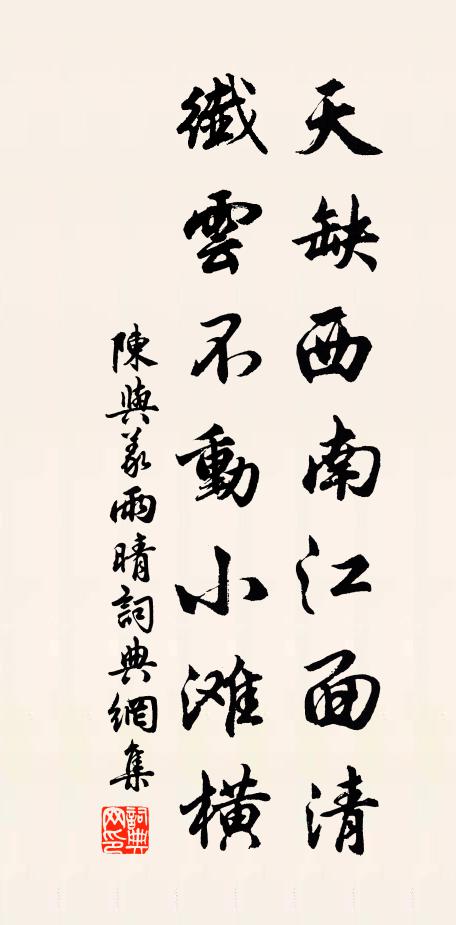 天缺西南江面清
纖雲不動小滩橫
陳與義雨晴詞典網集
詞典网印